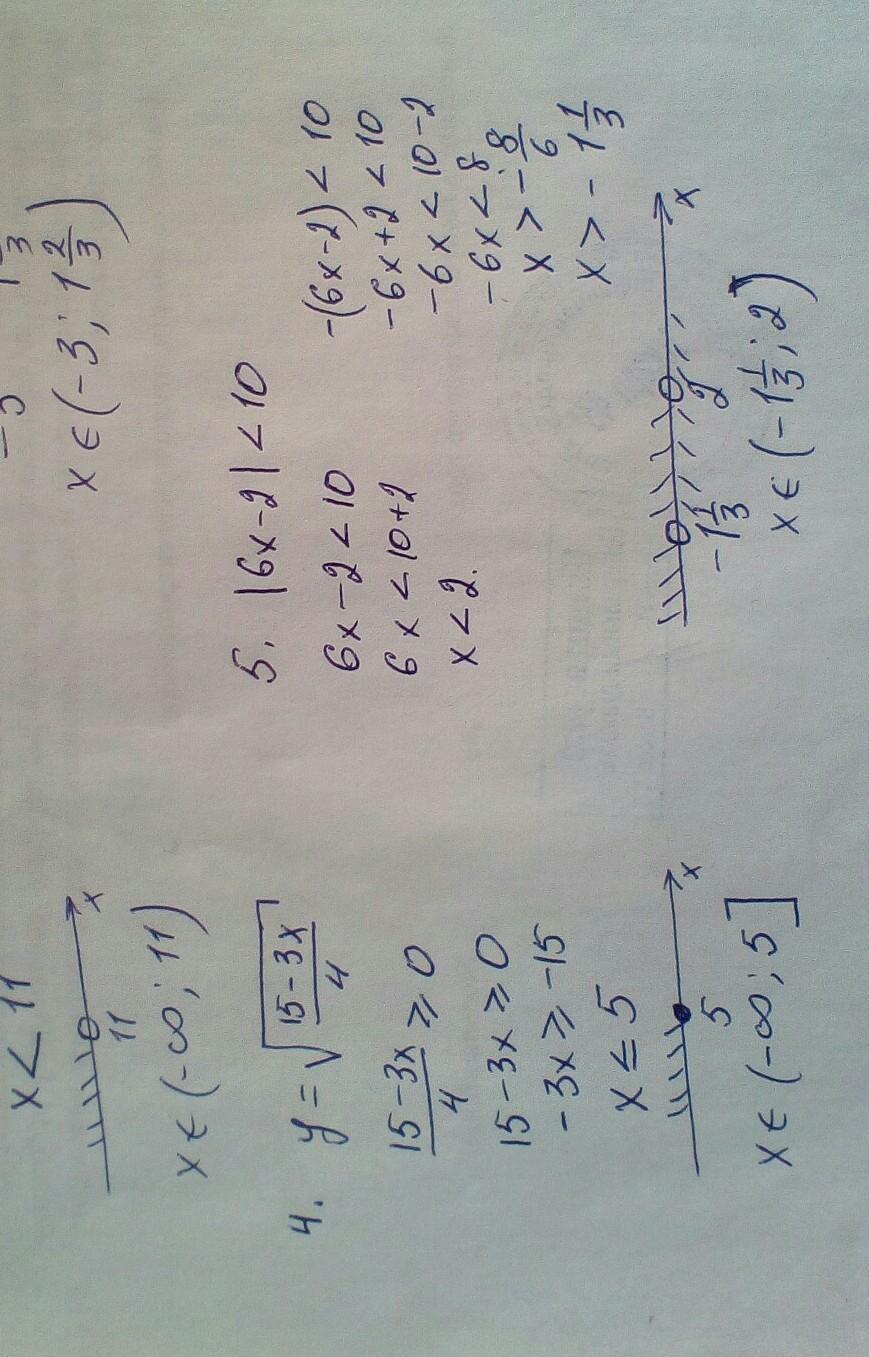 x < 11
11 x
x ∈ (-∞; 11)
4. y = √((15-3x)/4)
(15-3x)/4 ⩾ 0
15-3x ⩾ 0
-3x ⩾ -15
x ≤ 5
5 x
x ∈ (-∞; 5]
x ∈ (-3; 1 2/3)
5. |6x-2| < 10
6x-2 < 10
6x < 10+2
x < 2.
-(6x-2) < 10
-6x+2 < 10
-6x < 10-2
-6x < 8
x > -8/6
x > -1 1/3
-1 1/3 2 x
x ∈ (-1 1/3; 2)